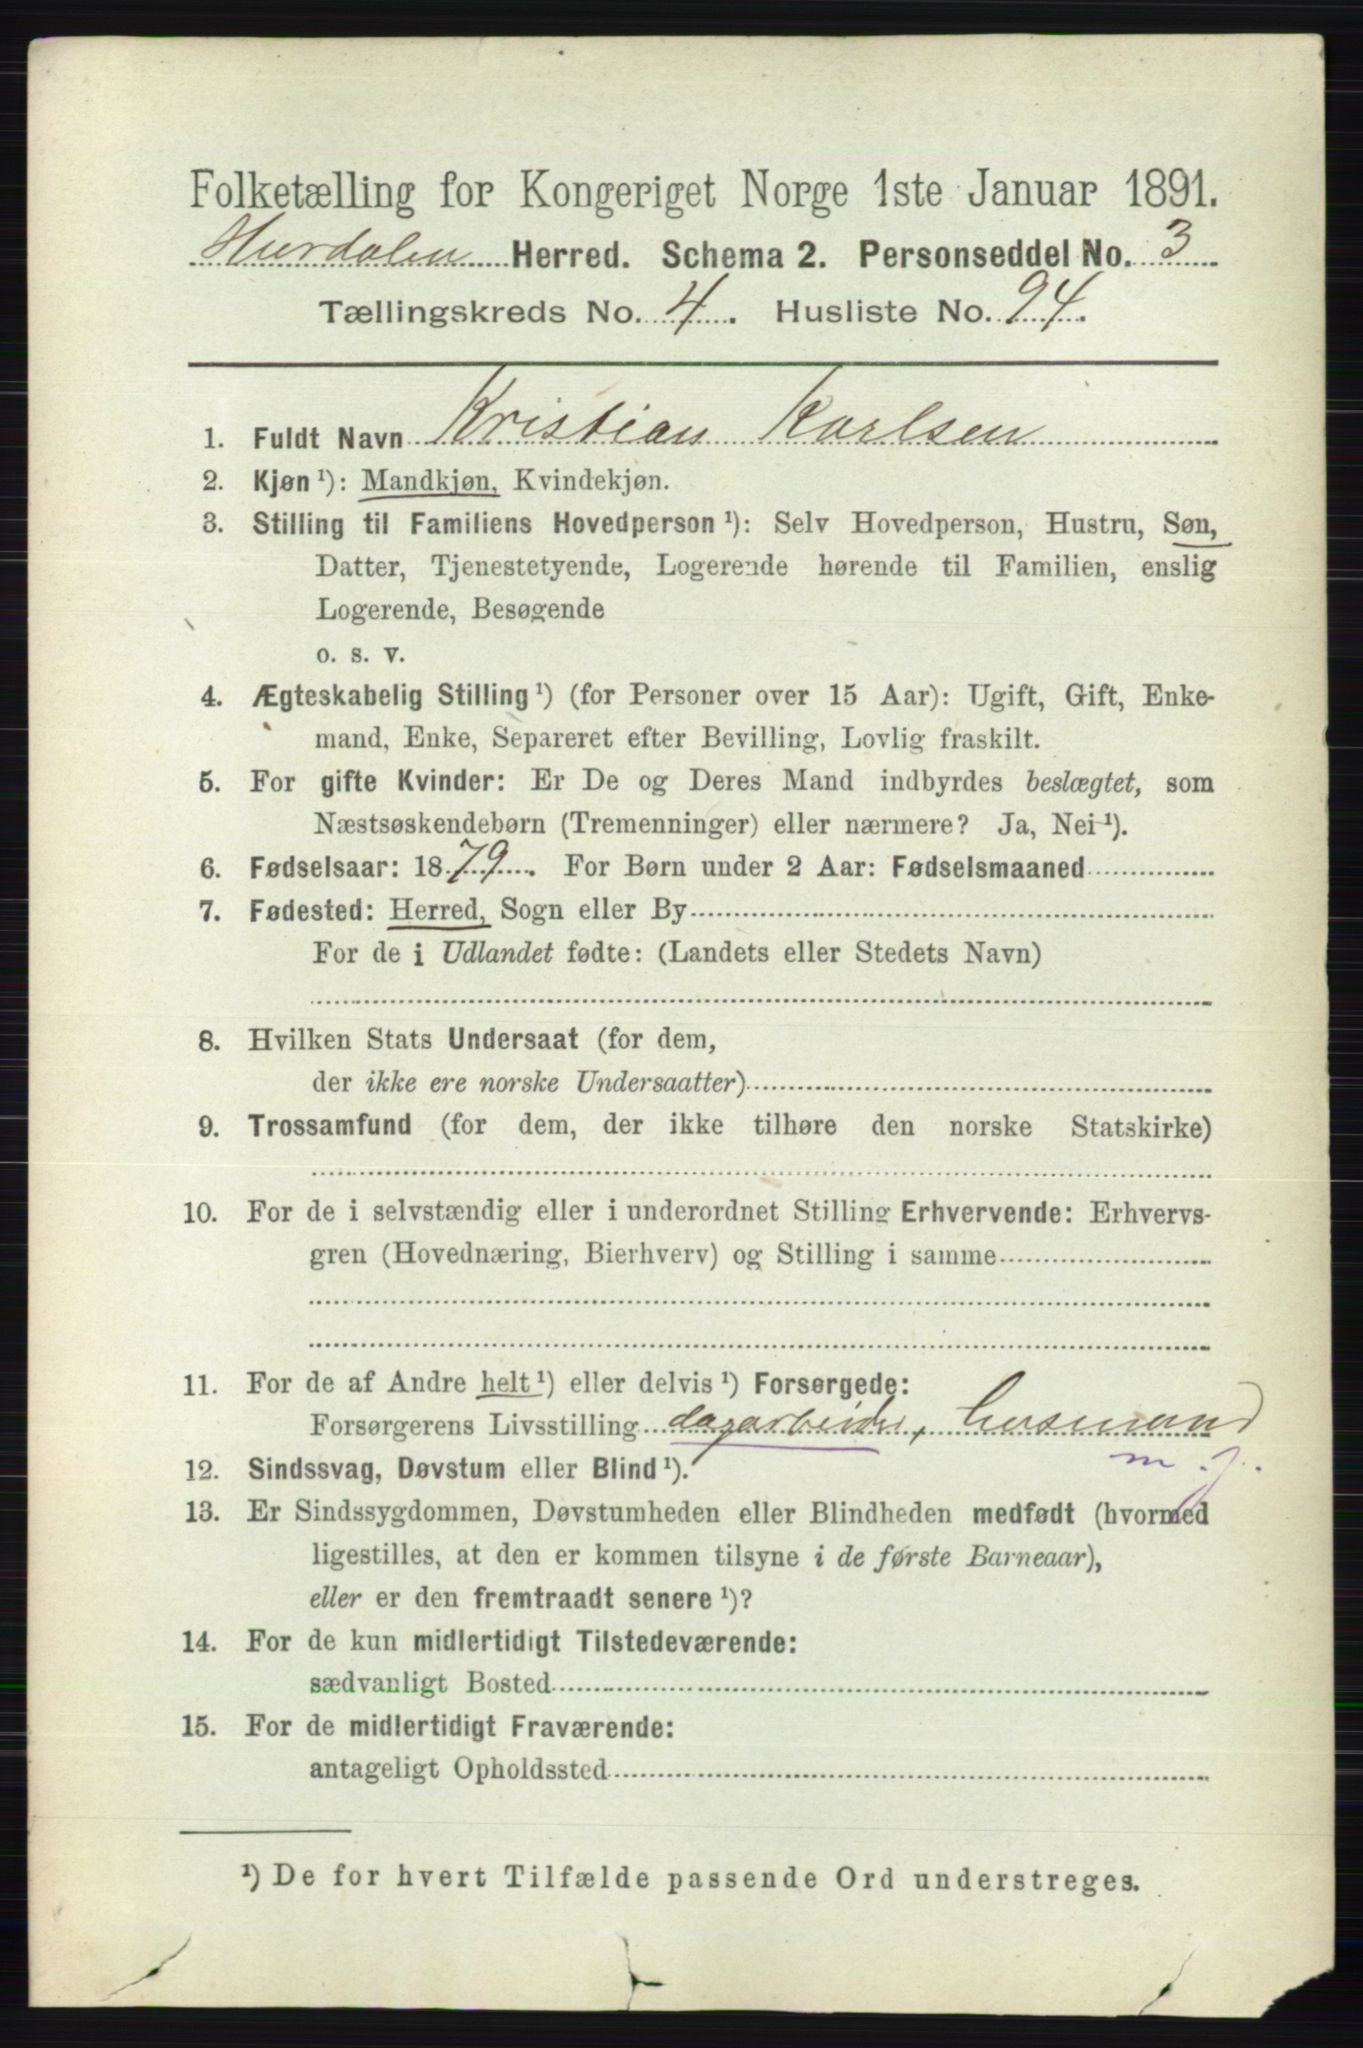 Folketælling for Kongeriget Norge 1ste Januar 1891.
Hurdalen Herred. Schema 2. Personseddel No. 3
Tællingskreds No. 4. Husliste No. 94.
1. Fuldt Navn Kristian Karlsen
2. Kjøn ¹): Mandkjøn, Kvindekjøn.
3. Stilling til Familiens Hovedperson ¹): Selv Hovedperson, Hustru, Søn,
Datter, Tjenestetyende, Logerende hørende til Familien, enslig
Logerende, Besøgende
o. s. v.
4. Ægteskabelig Stilling ¹) (for Personer over 15 Aar): Ugift, Gift, Enke-
mand, Enke, Separeret efter Bevilling, Lovlig fraskilt.
5. For gifte Kvinder: Er De og Deres Mand indbyrdes beslægtet, som
Næstsøskendebørn (Tremenninger) eller nærmere? Ja, Nei ¹).
6. Fødselsaar: 1879. For Børn under 2 Aar: Fødselsmaaned
7. Fødested: Herred, Sogn eller By
For de i Udlandet fødte: (Landets eller Stedets Navn)
8. Hvilken Stats Undersaat (for dem,
der ikke ere norske Undersaatter)
9. Trossamfund (for dem, der ikke tilhøre den norske Statskirke)
10. For de i selvstændig eller i underordnet Stilling Erhvervende: Erhvervs-
gren (Hovednæring, Bierhverv) og Stilling i samme
11. For de af Andre helt ¹) eller delvis ¹) Forsørgede:
Forsørgerens Livsstilling dagarbeider, husmand
m. j.
12. Sindssvag, Døvstum eller Blind ¹).
13. Er Sindssygdommen, Døvstumheden eller Blindheden medfødt (hvormed
ligestilles, at den er kommen tilsyne i de første Barneaar),
eller er den fremtraadt senere ¹)?
14. For de kun midlertidigt Tilstedeværende:
sædvanligt Bosted
15. For de midlertidigt Fraværende:
antageligt Opholdssted
¹) De for hvert Tilfælde passende Ord understreges.